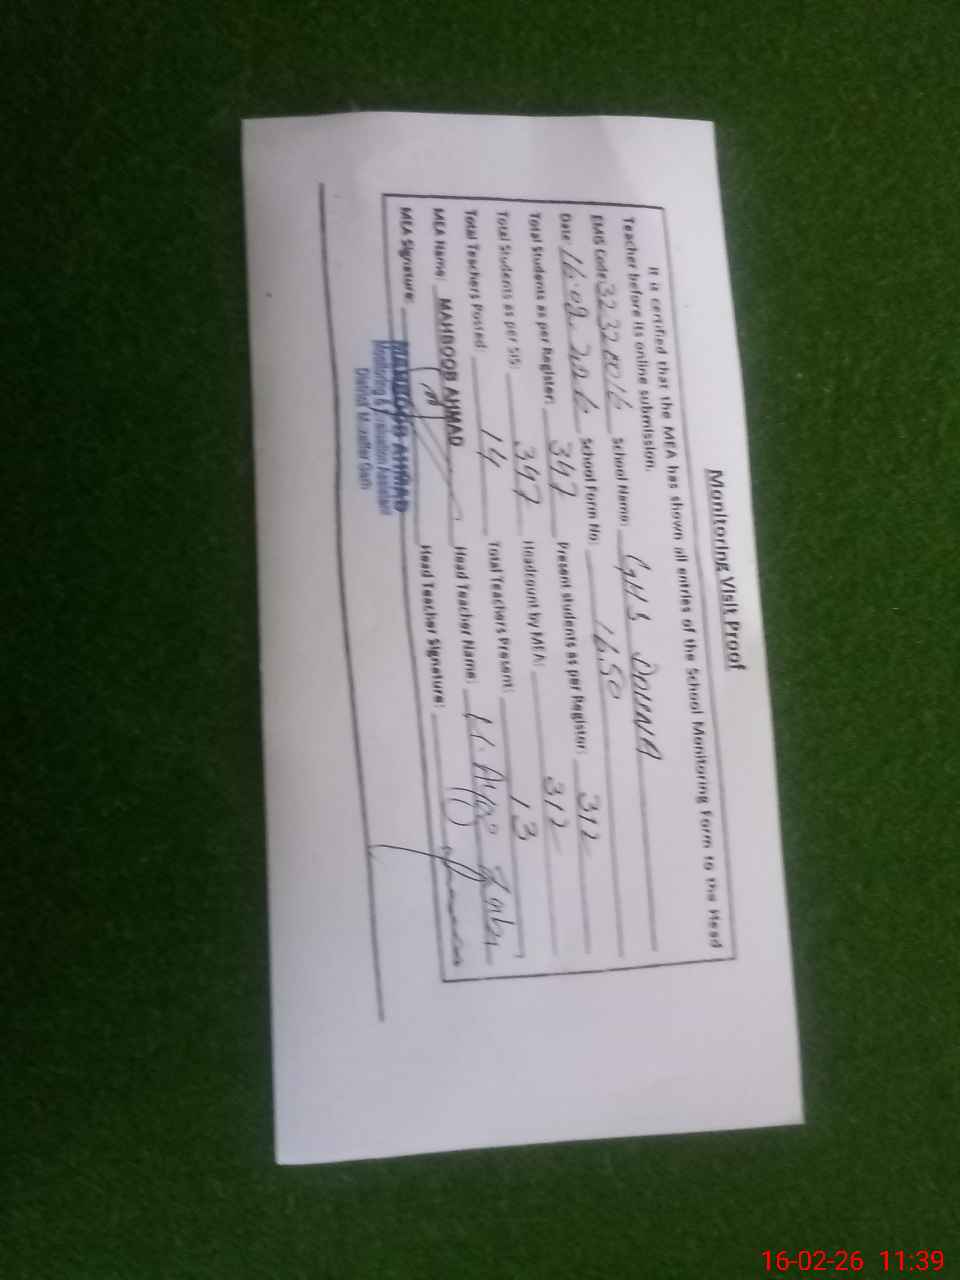 Monitoring Visit Proof
It is certified that the MEA has shown all entries of the School Monitoring Form to the Head
Teacher before its online submission.
EMIS Code 32320016 School Name: GHS DOUNA
Date 16.02.2026 School Form No: 1650
Total Students as per Register: 347 Present students as per Register: 312
Total Students as per SIS: 347 Headcount by MEA: 312
Total Teachers Posted: 14 Total Teachers Present: 13
MEA Name: MAHBOOB AHMAD Head Teacher Name:
MEA Signature: Head Teacher Signature:
MAHBOOB AHMAD
Monitoring & Evaluation Assistant
District Muzaffar Garh
16-02-26 11:39